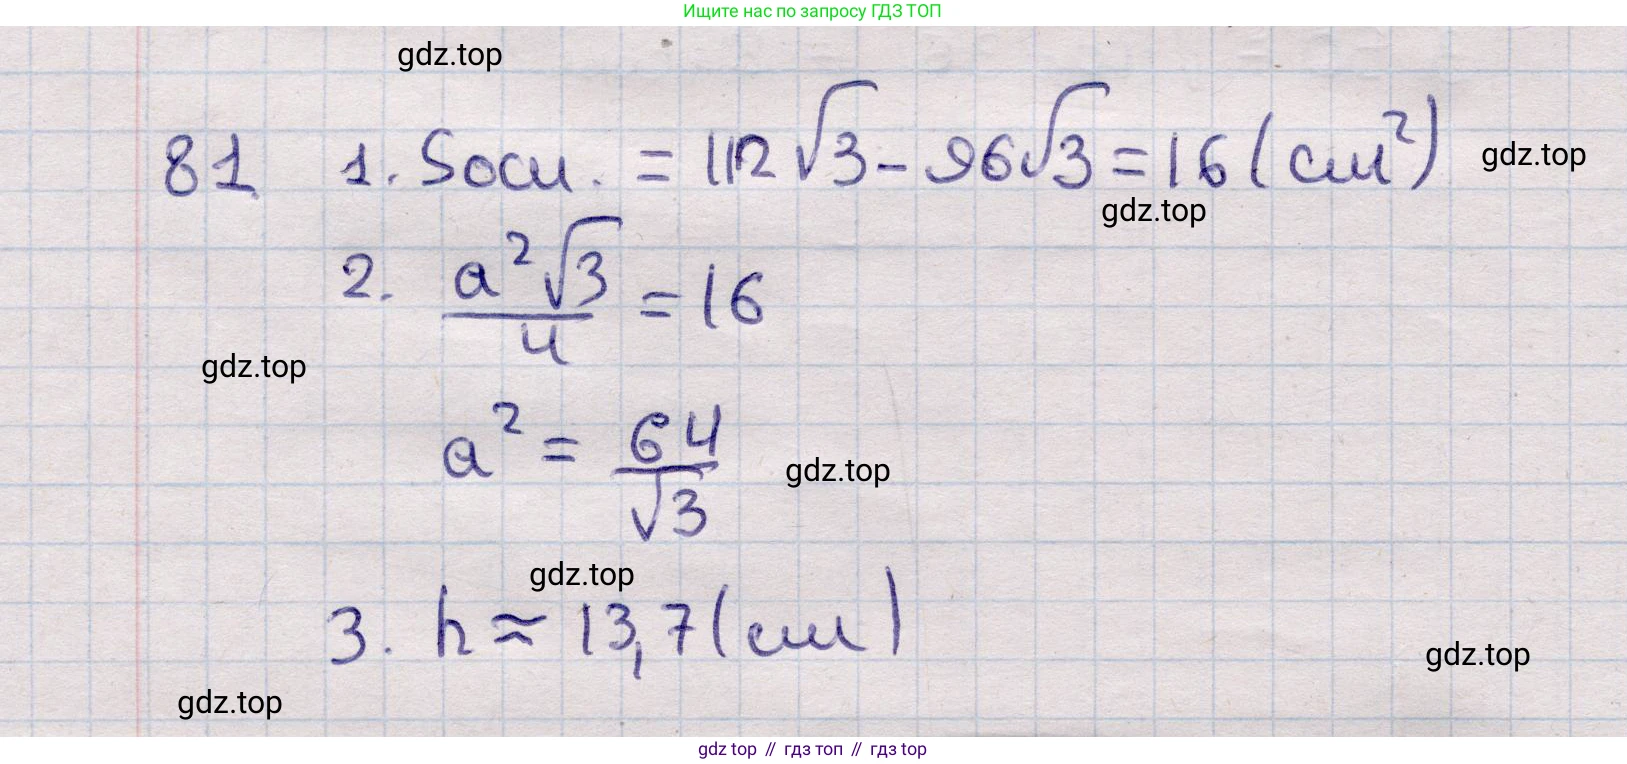 Ищите нас по запросу ГДЗ ТОП
gdz.top
81. 1. Sосн. = 112√3 - 96√3 = 16 (см²)
gdz.top
gdz.top
2. a²√3/4 = 16
gdz.top
a² = 64/√3
gdz.top
gdz.top
3. h ≈ 13,7 (см)
gdz.top
gdz.top
gdz top // гдз топ // гдз top